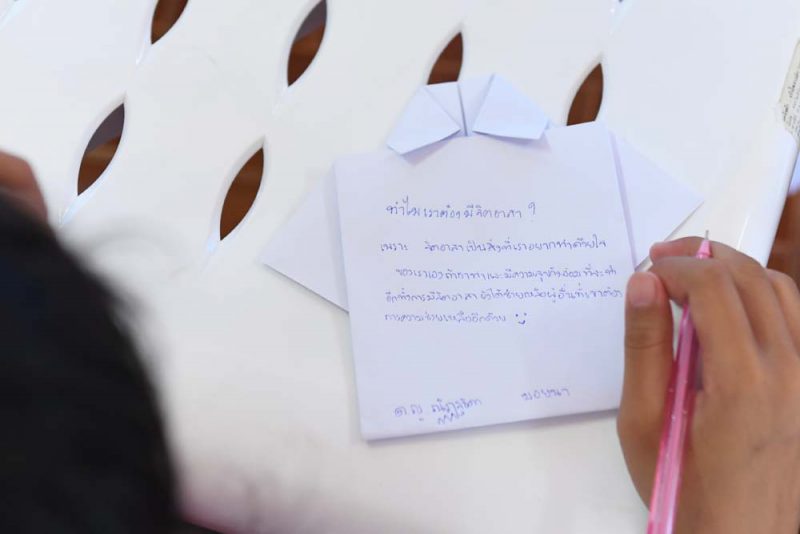 ทำไมเราต้องมีจิตอาสา ?
เพราะ จิตอาสาเป็นสิ่งที่เราอยากทำด้วยใจ
ของเราเอง ถ้าเราทำและมีความสุขก็
อีกทั้งการมีจิตอาสา ยังได้ช่วยเหลือผู้อื่นที่เขาต้อง
การความช่วยเหลืออีกด้วย
ด.ญ.